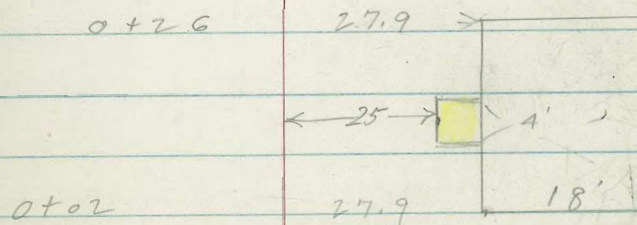 0+26 27.9
25 4'
0+02 27.9 18'